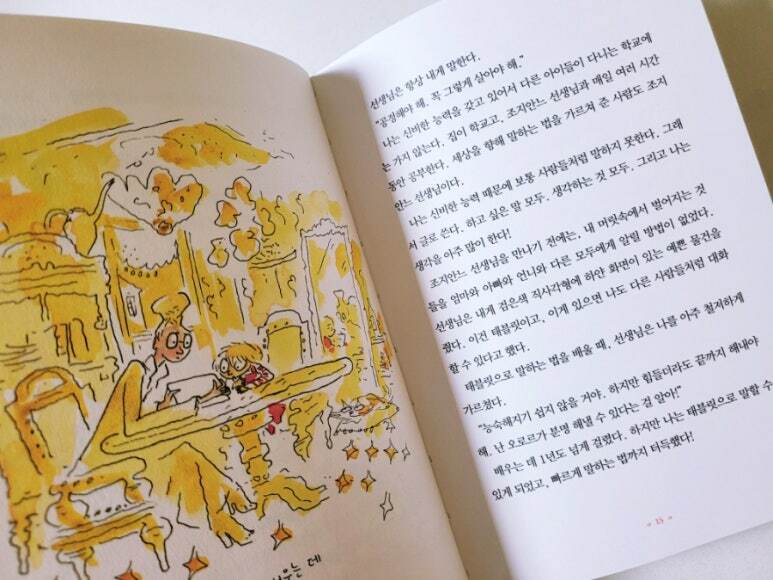 우는 데
선생님은 항상 내게 말한다.
"공정해야 해. 꼭 그렇게 살아야 해."
나는 신비한 능력을 갖고 있어서 다른 아이들이 다니는 학교에
는 가지 않는다. 집이 학교고, 조지안느 선생님과 매일 여러 시간
동안 공부한다. 세상을 향해 말하는 법을 가르쳐 준 사람도 조지
안느 선생님이다.
나는 신비한 능력 때문에 보통 사람들처럼 말하지 못한다. 그래
서 글로 쓴다. 하고 싶은 말 모두. 생각하는 것 모두. 그리고 나는
생각을 아주 많이 한다!
조지안느 선생님을 만나기 전에는, 내 머릿속에서 벌어지는 것
들을 엄마와 아빠와 언니와 다른 모두에게 알릴 방법이 없었다.
선생님은 내게 검은색 직사각형에 하얀 화면이 있는 예쁜 물건을
줬다. 이건 태블릿이고, 이게 있으면 나도 다른 사람들처럼 대화
할 수 있다고 했다.
태블릿으로 말하는 법을 배울 때, 선생님은 나를 아주 철저하게
가르쳤다.
"능숙해지기 쉽지 않을 거야. 하지만 힘들더라도 끝까지 해내야
해. 난 오로르가 분명 해낼 수 있다는 걸 알아!"
배우는 데 1년도 넘게 걸렸다. 하지만 나는 태블릿으로 말할 수
있게 되었고, 빠르게 말하는 법까지 터득했다!
15